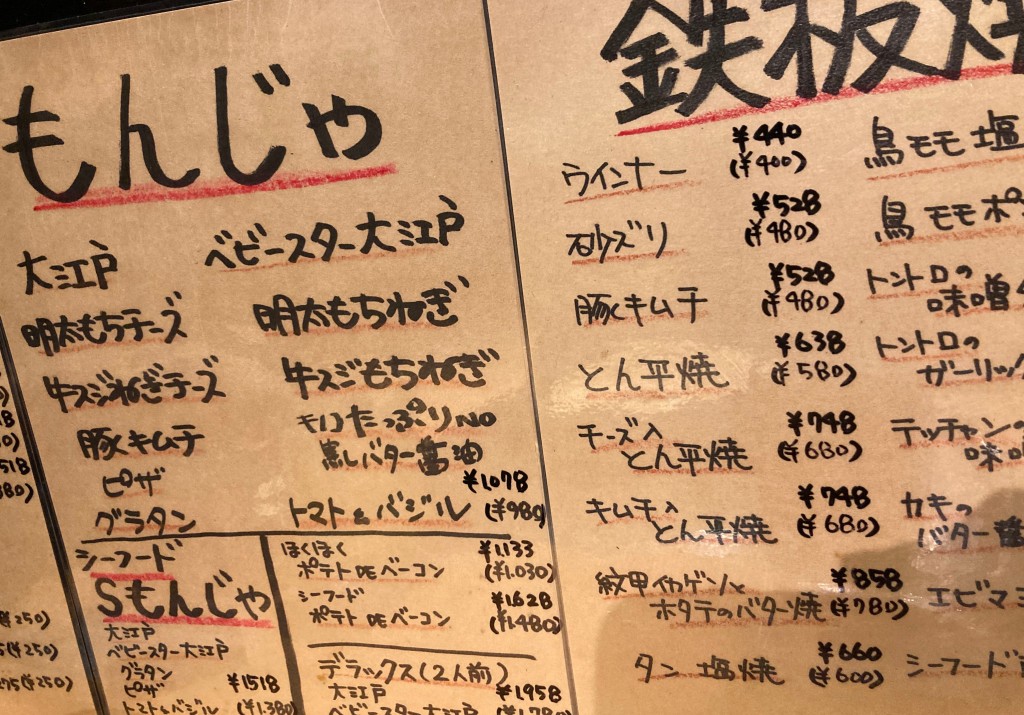 もんじゃ
大江戸
ベビースター大江戸
明太もちチーズ
明太もちねぎ
牛スジねぎチーズ
牛スジもちねぎ
豚キムチ
たっぷりNO
黒しバター醤油
ピザ
¥1078
グラタン
トマト&バジル (¥980)
シーフード
Sもんじゃ
大江戸
ベビースター大江戸
グラタン
ピザ ¥1518
トマト&バジル (¥1.380)
ほくほく ¥1.133
ポテトDEベーコン (¥1.030)
シーフード ¥1.628
ポテトDEベーコン (¥1.480)
デラックス(2人前)
大江戸 ¥1958
ベビースター大江戸 (¥1.780)
鉄板焼
ウインナー ¥440
(¥400)
砂ズリ ¥528
(¥480)
豚キムチ ¥528
(¥480)
とん平焼 ¥638
(¥580)
チーズ入 ¥748
とん平焼 (¥680)
キムチ入 ¥748
とん平焼 (¥680)
紋甲イカゲソと ¥858
ホタテのバター焼 (¥780)
タン塩焼 ¥660
(¥600)
鳥モモ塩
鳥モモポ
トントロの
味噌
トントロの
ガーリック
テッチャンの
味
カキの
バター醤
エビマ
シーフード
¥250)
(¥250)
(¥250)